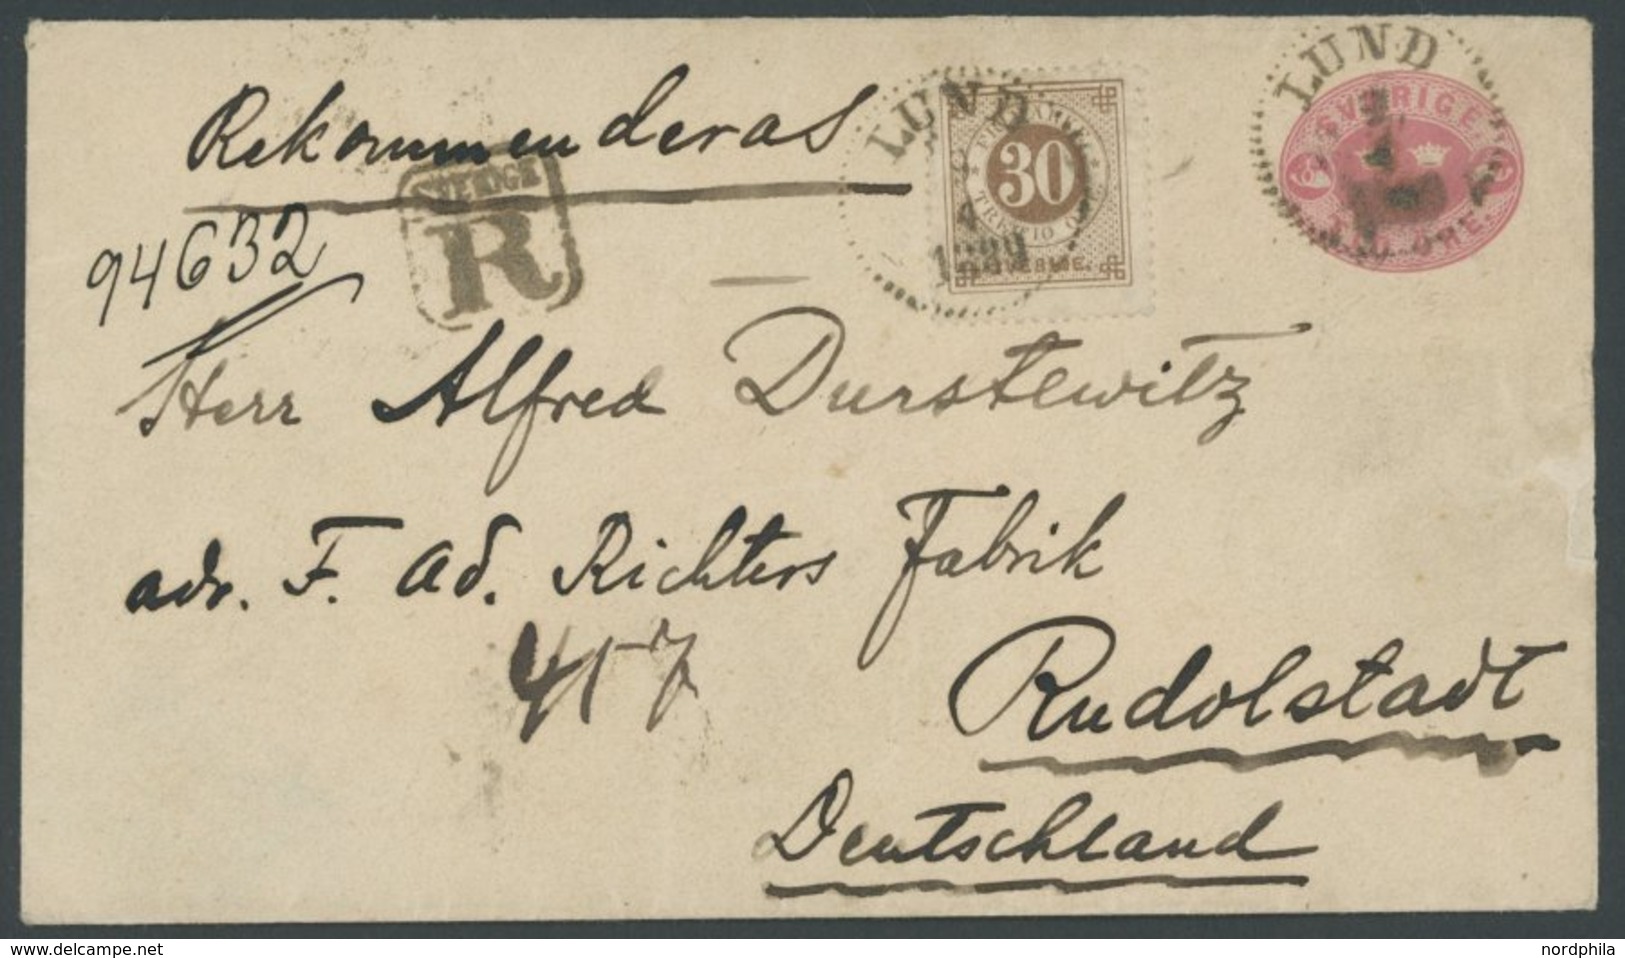 Rekommenderas
LUND
LUND
SVERIGE
SVERIGE
R
30
TRETTIO ÖRE
94632
Herr Alfred Durstewitz
adr. F. Ad. Richters Fabrik
417
Rudolstadt
Deutschland
www.delcampe.net
nordphila